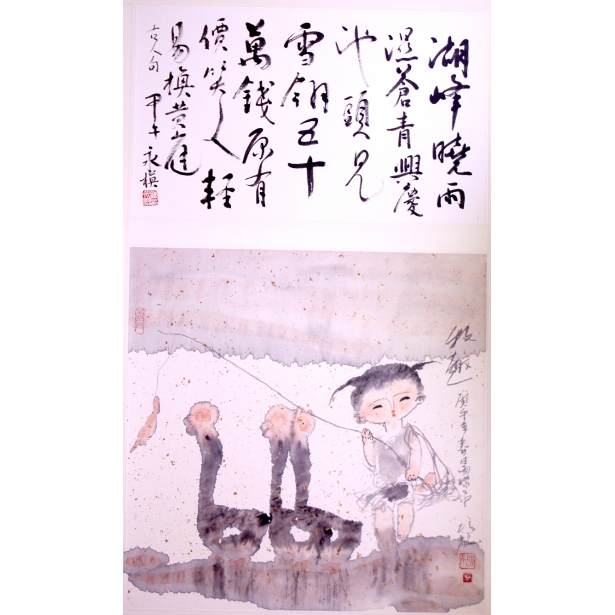 湖峰曉雨
濕蒼青興慶
池頭見
雪翎五十
萬錢原有
價笑人輕
易換黃庭
古人句 甲午 永
牧趣
庚午年春月